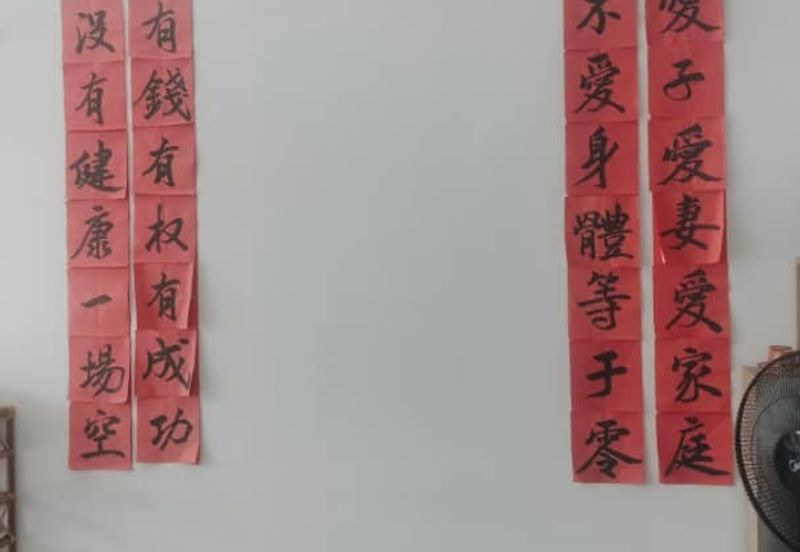 愛子愛妻愛家庭
不愛身體等于零
有錢有权有成功
沒有健康一場空